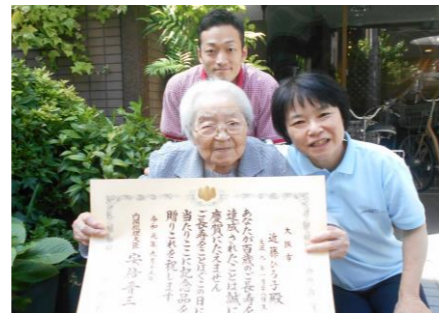 大阪市
近藤ひろ子殿
あなたが百歳のご長寿を
達成されたことは誠に
慶賀にたえません
ご長寿をことほぐこの日に
当たりここに記念品を
贈りこれを祝します
令和元年九月十五日
内閣総理大臣 安倍晋三